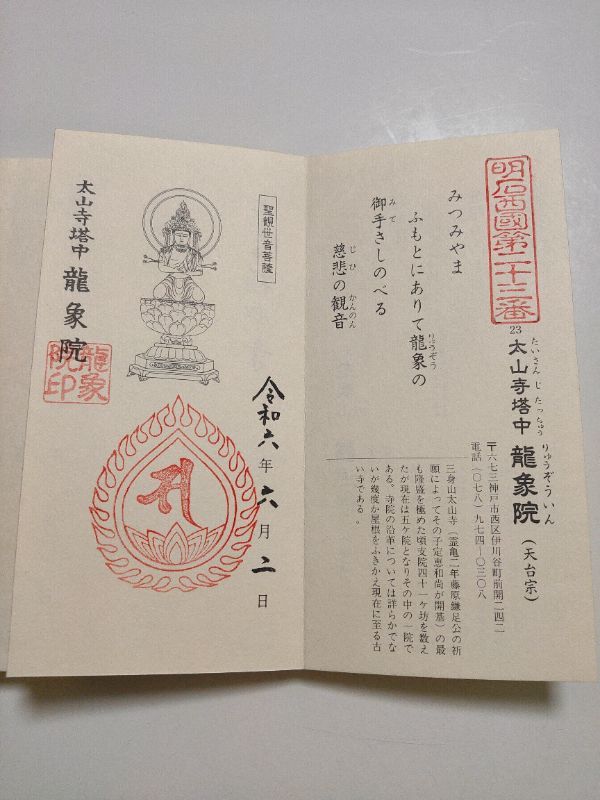 明石西國第二十三番
23 太山寺塔中 龍象院 (天台宗)
たいさんじたっちゅう りゅうぞういん
〒六七三神戸市西区伊川谷町前開二四二
電話(〇七八)九七四―〇三〇八
みつみやま
ふもとにありて龍象の
りゅうぞう
御手さしのべる
みて
慈悲の観音
じひ かんのん
三身山太山寺(霊亀二年藤原鎌足公の祈
願によってその子定恵和尚が開基)の最
も隆盛を極めた頃支院四十一ヶ坊を数え
たが現在は五ヶ院となりその中の一院で
ある。寺院の沿革については詳らかでな
いが幾度か屋根をふきかえ現在に至る古
い寺である。
聖観世音菩薩
令和六年六月二日
太山寺塔中 龍象院
龍象院印